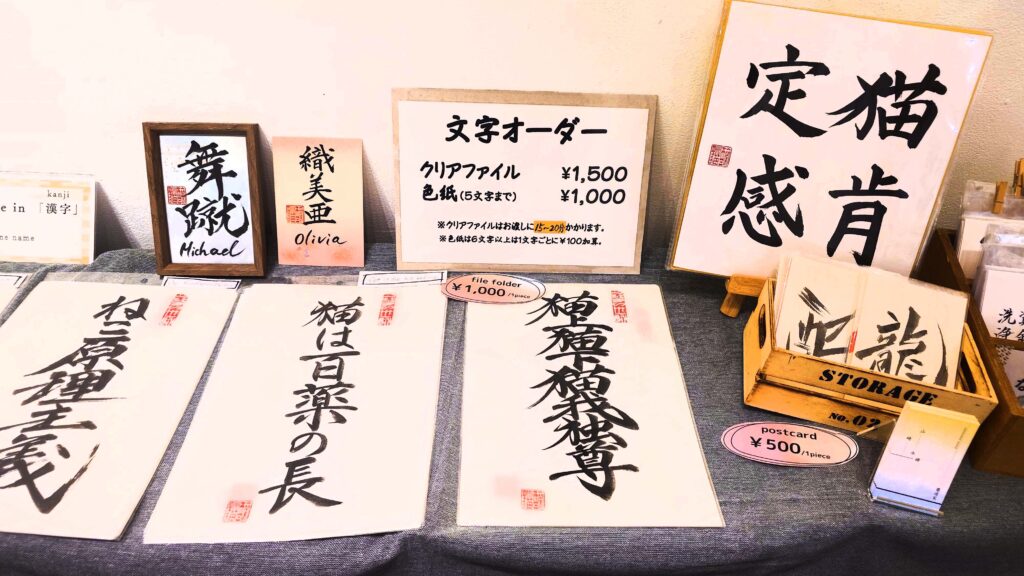 kanji
e in 「漢字」
ne name
舞蹴
Michael
織美亜
Olivia
文字オーダー
クリアファイル ¥1,500
色紙(5文字まで) ¥1,000
※クリアファイルはお渡しに15~20分かかります。
※色紙は6文字以上は1文字ごとに¥100加算。
猫肯
定感
ねこ原理主義
猫は百薬の長
file folder
¥1,000/1piece
猫上猫下猫我独尊
龍
STORAGE
No. 02
postcard
¥500/1piece